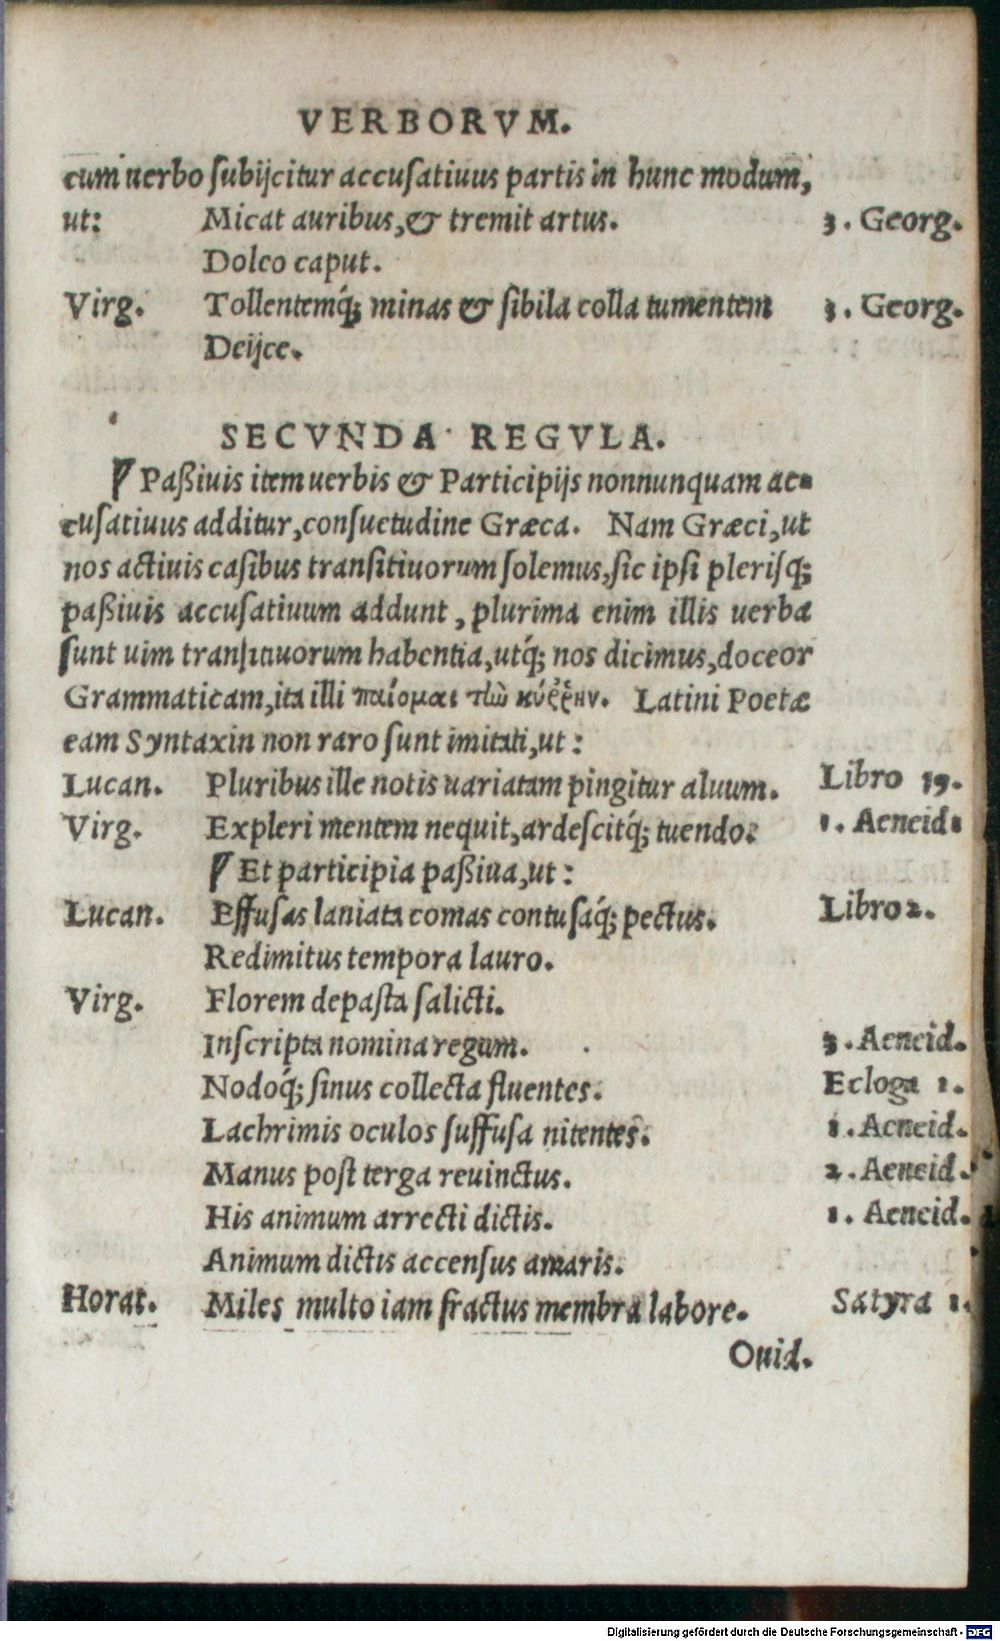 VERBORVM.
cum uerbo subijcitur accusatiuus partis in hunc modum,
ut: Micat auribus, & tremit artus. 3. Georg.
Doleo caput.
Virg. Tollentemq́; minas & sibila colla tumentem 3. Georg.
Deijce.
SECVNDA REGVLA.
Paßiuis item uerbis & Participijs nonnunquam ac-
cusatiuus additur, consuetudine Græca. Nam Græci, ut
nos actiuis casibus transitiuorum solemus, sic ipsi plerisq́;
paßiuis accusatiuum addunt, plurima enim illis uerba
sunt uim transitiuorum habentia, utq́; nos dicimus, doceor
Grammaticam, ita illi Latini Poetæ
eam Syntaxin non raro sunt imitati, ut:
Lucan. Pluribus ille notis uariatam pingitur aluum. Libro 19.
Virg. Expleri mentem nequit, ardescitq́; tuendo. 1. Aeneid.
Et participia paßiua, ut:
Lucan. Effusas laniata comas contusaq́; pectus. Libro 2.
Redimitus tempora lauro.
Virg. Florem depasta salicti.
Inscripta nomina regum. 3. Aeneid.
Nodoq́; sinus collecta fluentes. Ecloga 1.
Lachrimis oculos suffusa nitentes. 1. Aeneid.
Manus post terga reuinctus. 2. Aeneid.
His animum arrecti dictis. 1. Aeneid.
Animum dictis accensus amaris.
Horat. Miles multo iam fractus membra labore. Satyra 1.
Ouid.
Digitalisierung gefördert durch die Deutsche Forschungsgemeinschaft - DFG